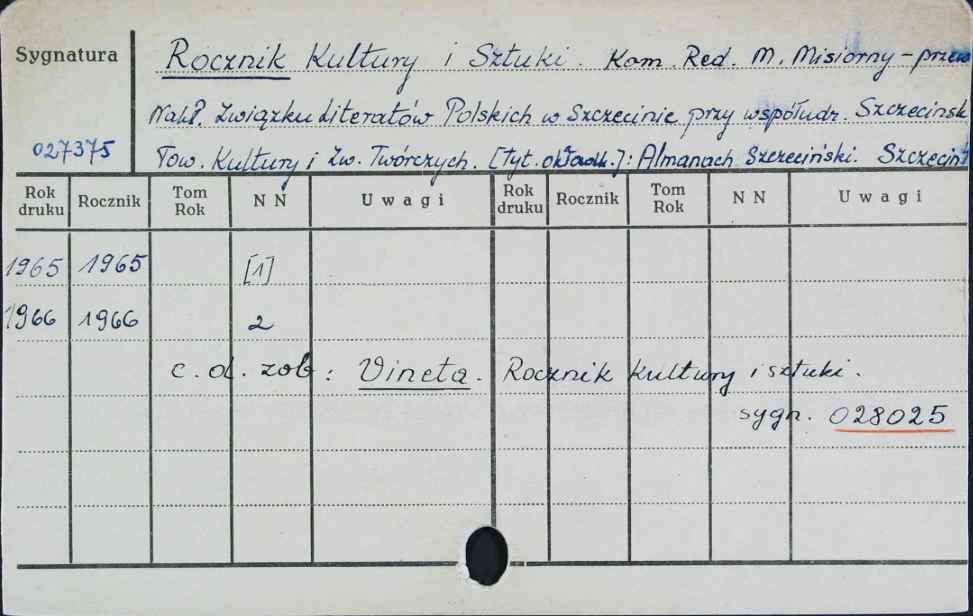 Sygnatura
Rocznik Kultury i Sztuki. Kom. Red. M. Misiorny – przew
Nakł. Związku Literatów Polskich w Szczecinie przy współudz. Szczecińsk
027375
Tow. Kultury i Zw. Twórczych. [Tyt. okładk.]: Almanach Szczeciński. Szczecin
Rok druku Rocznik Tom Rok NN Uwagi Rok druku Rocznik Tom Rok NN Uwagi
1965 1965 [1]
1966 1966 2
c.d. zob: Vineta. Rocznik kultury i sztuki.
sygn. 028025